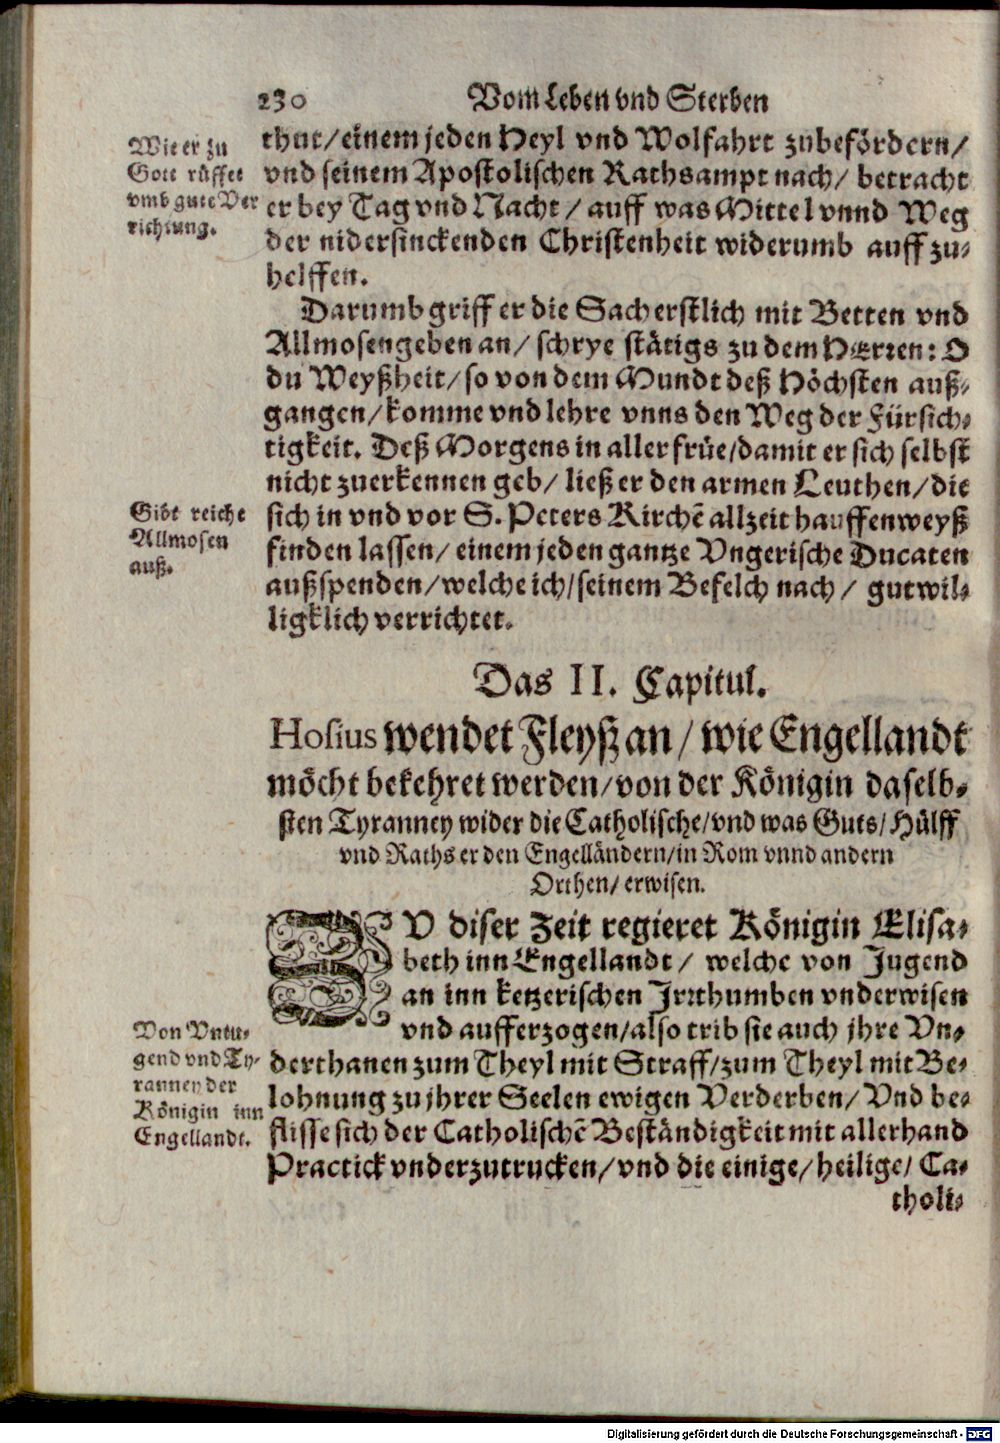 230 Vom Leben vnd Sterben
thut/einem jeden Heyl vnd Wolfahrt zubefördern/
vnd seinem Apostolischen Rathsampt nach/ betracht
er bey Tag vnd Nacht/ auff was Mittel vnnd Weg
der nidersinckenden Christenheit widerumb auff zu-
helffen.
Wie er zu
Gott rüffet
vmb gute Ver
richtung.
Darumb griff er die Sach erstlich mit Betten vnd
Allmosengeben an/ schrye stätigs zu dem HErren: O
du Weyßheit/so von dem Mundt deß Höchsten auß-
gangen/komme vnd lehre vnns den Weg der Fürsich-
tigkeit. Deß Morgens in aller früe/damit er sich selbst
nicht zuerkennen geb/ ließ er den armen Leuthen/die
sich in vnd vor S. Peters Kirchẽ allzeit hauffenweyß
finden lassen/ einem jeden gantze Vngerische Ducaten
außspenden/welche ich/seinem Befelch nach/ gutwil-
ligklich verrichtet.
Gibt reiche
Allmosen
auß.
Das II. Capitul.
Hosius wendet Fleyß an/wie Engellandt
möcht bekehret werden/von der Königin daselb-
sten Tyranney wider die Catholische/vnd was Guts/Hülff
vnd Raths er den Engelländern/in Rom vnnd andern
Orthen/erwisen.
ZU diser Zeit regieret Königin Elisa-
beth inn Engellandt/ welche von Jugend
an inn ketzerischen Jrrthumben vnderwisen
vnd aufferzogen/also trib sie auch jhre Vn-
derthanen zum Theyl mit Straff/zum Theyl mit Be-
lohnung zu jhrer Seelen ewigen Verderben/ Vnd be-
flisse sich der Catholischẽ Beständigkeit mit allerhand
Practick vnderzutrucken/vnd die einige/heilige/ Ca-
tholi-
Von Vntu-
gend vnd Ty-
ranney der
Königin inn
Engellandt.
Digitalisierung gefördert durch die Deutsche Forschungsgemeinschaft - DFG